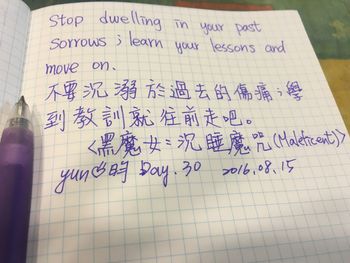 Stop dwelling in your past
sorrows; learn your lessons and
move on.
不要沉溺於過去的傷痛；學
到教訓就往前走吧。
<黑魔女：沉睡魔咒(Maleficent)>
yun Day.30 2016.08.15